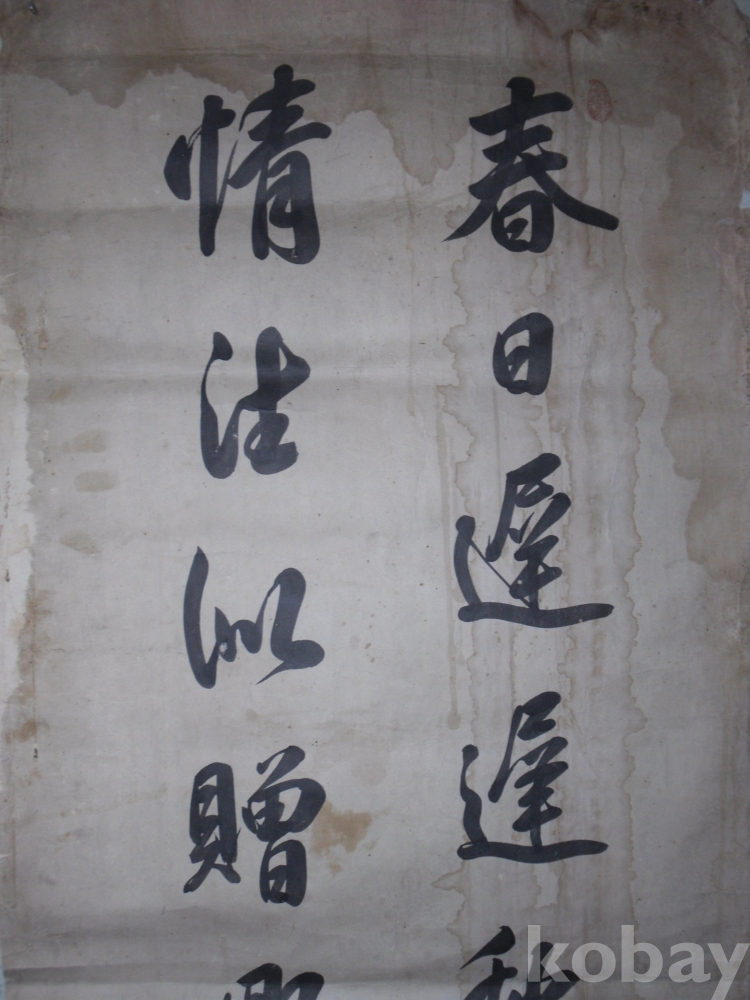 春日遲遲
情往似贈
kobay